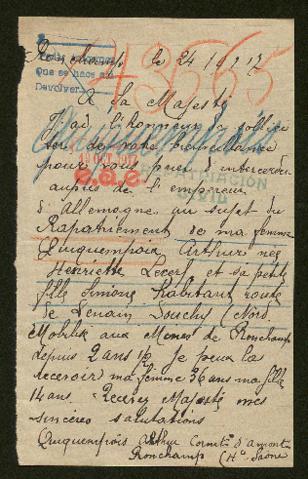 43565
Ronchamp le 24 1917
Que se hace al
Devolver
A Sa Majesté
J'ai l'honneur
de votre bienveillance
pour vous prier d'intercéder
auprès de l'empereur
d'Allemagne au sujet du
Rapatriement de ma femme
Quinquempoix Arthur née
Henriette et sa petite
fille Simone habitant route
de Denain Douchy Nord.
Mobilisé aux Mines de Ronchamp
depuis 2 ans 1/2 je peux la
recevoir ma femme 36 ans ma fille
14 ans Recevez Majesté mes
sincères salutations
Quinquempois Arthur d'amont
Ronchamp (Hte Saône